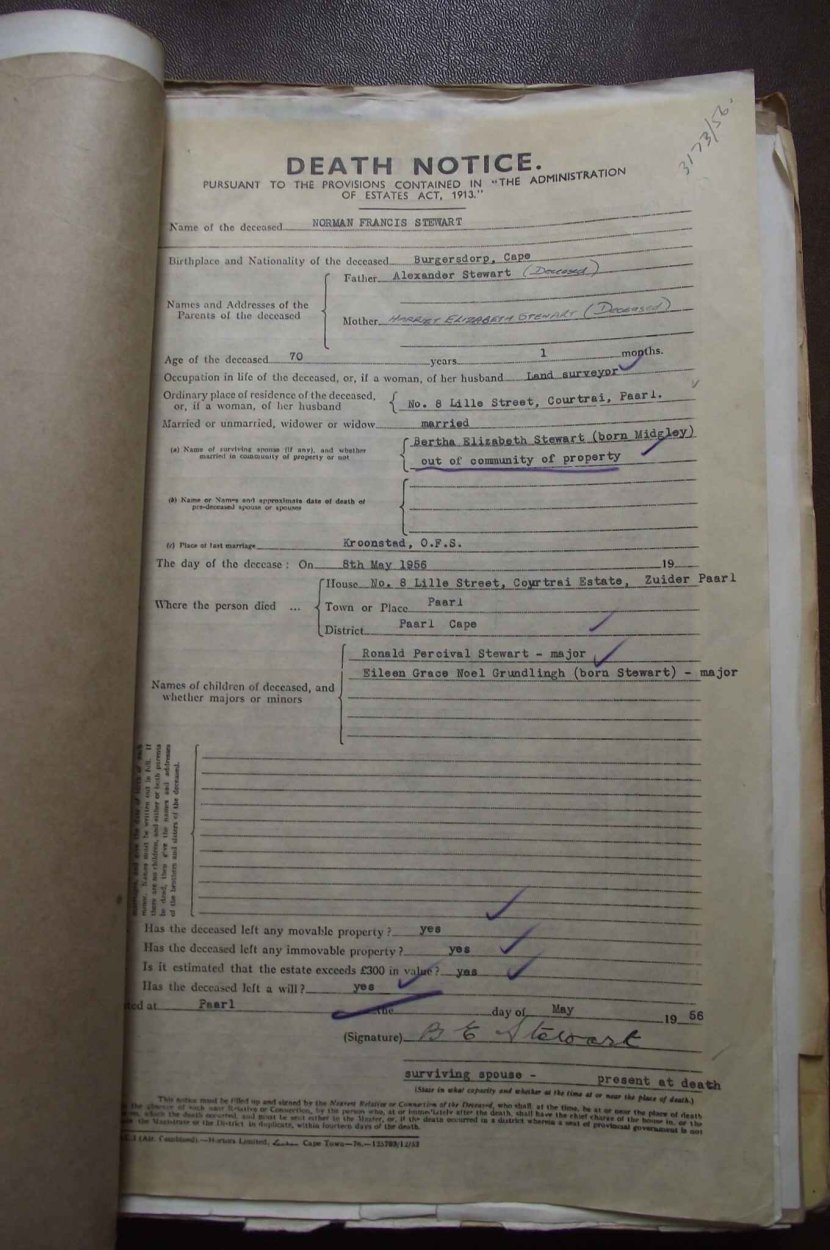 3173/56.
DEATH NOTICE.
PURSUANT TO THE PROVISIONS CONTAINED IN "THE ADMINISTRATION
OF ESTATES ACT, 1913."
Name of the deceased NORMAN FRANCIS STEWART
Birthplace and Nationality of the deceased Burgersdorp, Cape
Names and Addresses of the Parents of the deceased
Father Alexander Stewart (Deceased)
Mother HARRIET ELIZABETH STEWART (Deceased)
Age of the deceased 70 years 1 months.
Occupation in life of the deceased, or, if a woman, of her husband Land surveyor
Ordinary place of residence of the deceased,
or, if a woman, of her husband No. 8 Lille Street, Courtrai, Paarl.
Married or unmarried, widower or widow married
(a) Name of surviving spouse (if any), and whether
married in community of property or not
Bertha Elizabeth Stewart (born Midgley)
out of community of property
(b) Name or Names and approximate date of death of
pre-deceased spouse or spouses
(c) Place of last marriage Kroonstad, O.F.S.
The day of the decease: On 8th May 1956 19
Where the person died ...
House No. 8 Lille Street, Courtrai Estate, Zuider Paarl
Town or Place Paarl
District Paarl Cape
Names of children of deceased, and
whether majors or minors
Ronald Percival Stewart - major
Eileen Grace Noel Grundlingh (born Stewart) - major
name. Names must be written out in full. If
there are no children, and either or both parents
be dead, then give the names and addresses
of the brothers and sisters of the deceased.
Has the deceased left any movable property? yes
Has the deceased left any immovable property? yes
Is it estimated that the estate exceeds £300 in value? yes
Has the deceased left a will? yes
ted at Paarl the day of May 19 56
(Signature) B E Stewart
surviving spouse - present at death
(State in what capacity and whether at the time at or near the place of death.)
This notice must be filled up and signed by the Nearest Relative or Connection of the Deceased, who shall at the time, be at or near the place of death
the absence of such near Relative or Connection, by the person who, at or immediately after the death, shall have the chief charge of the house in, or the
which the death occurred, and must be sent either to the Master, or, if the death occurred in a district wherein a seat of provincial government is not
the Magistrate of the District in duplicate, within fourteen days of the death.
(Air. Combined).—Hortors Limited, Cape Town—76.—125703/12/52